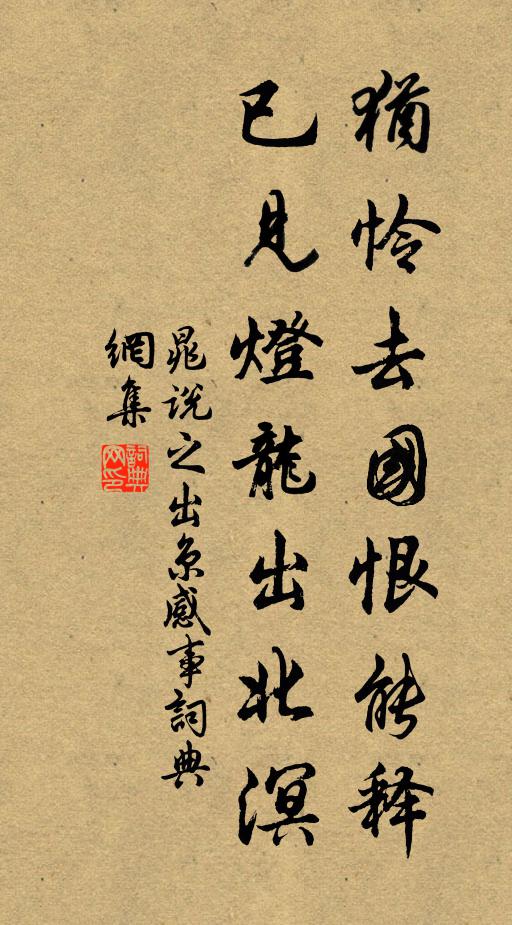 猶怜去國恨能释
已見燈龍出北溟
晁説之出京感事詞典
網集
詞典網印